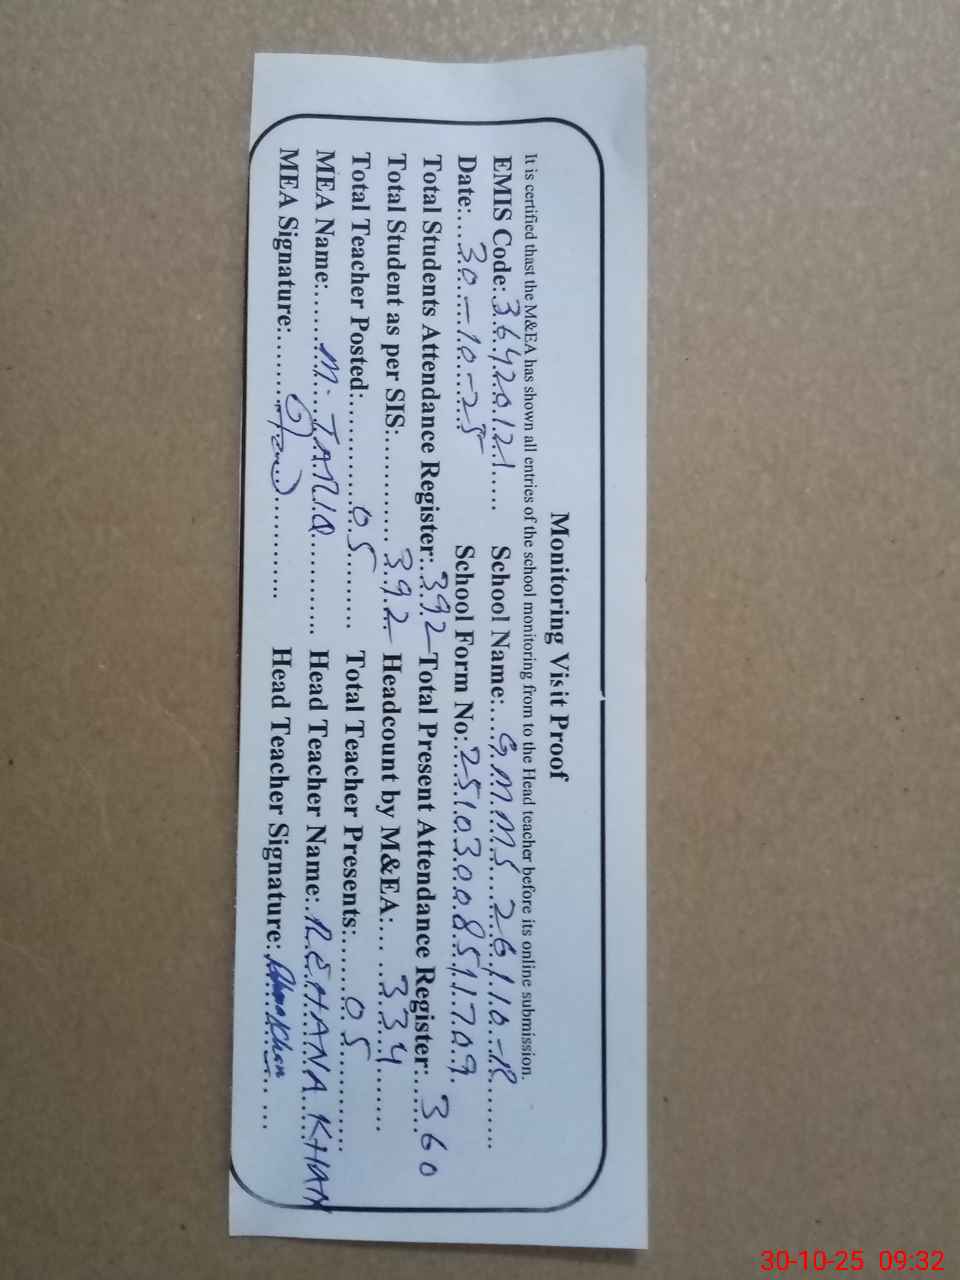 Monitoring Visit Proof
It is certified thast the M&EA has shown all entries of the school monitoring from to the Head teacher before its online submission.
EMIS Code: 36420121 School Name: G.M.M.S 261 10-R
Date: 30-10-25 School Form No: 2510300851709
Total Students Attendance Register: 392 Total Present Attendance Register: 360
Total Student as per SIS: 392 Headcount by M&EA: 334
Total Teacher Posted: 05 Total Teacher Presents: 05
MEA Name: M. TARIQ Head Teacher Name: REHANA KHAN
MEA Signature: Head Teacher Signature:
30-10-25 09:32